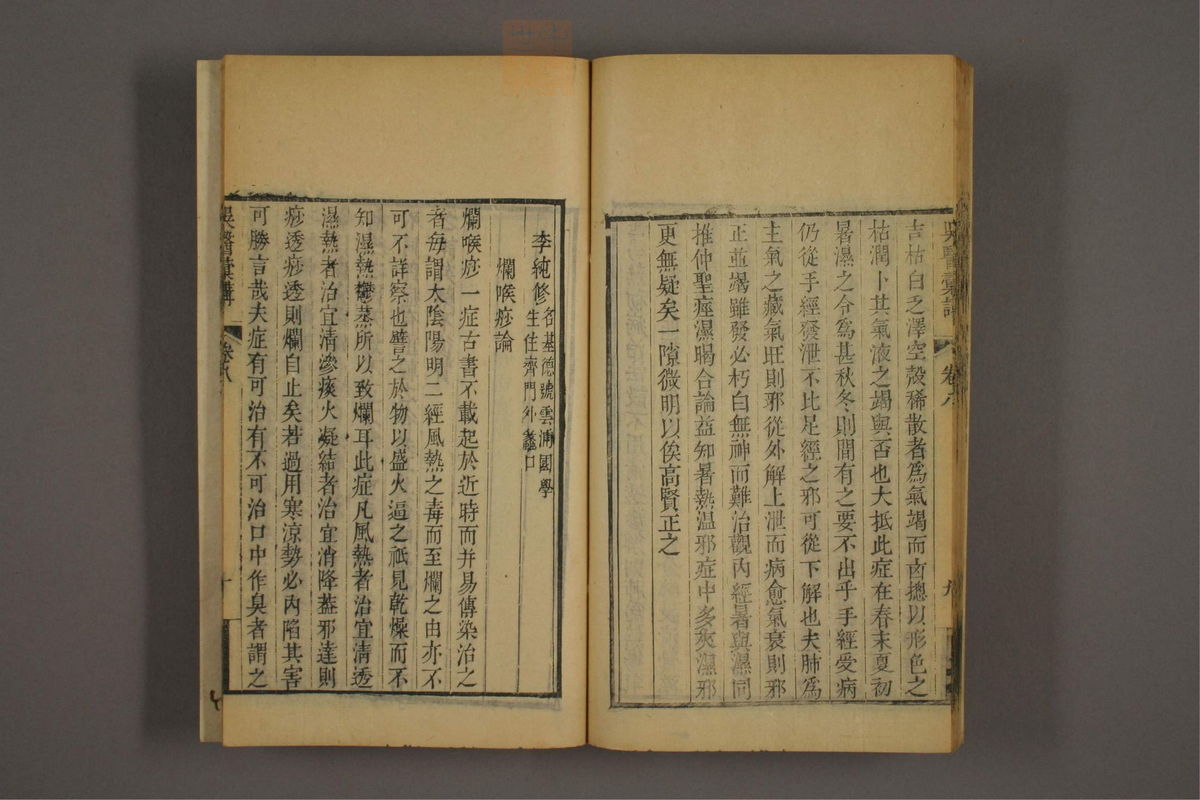 吉枯白乏澤空殼稀散者爲氣竭而凶摠以形色之
枯潤卜其氣液之竭與否也大抵此症在春末夏初
暑濕之令爲甚秋冬則間有之要不出乎手經受病
仍從手經發泄不比足經之邪可從下解也夫肺爲
主氣之藏氣旺則邪從外解上泄而病愈氣衰則邪
正並竭雖發必朽白無神而難治觀內經暑與濕同
推仲聖痙濕暍合論益知暑熱温邪症中多夾濕邪
更無疑矣一隙微明以俟高賢正之
李純修
名基德號雲浦國學
生住齊門外蠡口
爛喉痧論
爛喉痧一症古書不載起於近時而并易傳染治之
者每謂太陰陽明二經風熱之毒而至爛之由亦不
可不詳察也譬之於物以盛火逼之祇見乾燥而不
知濕熱鬱蒸所以致爛耳此症凡風熱者治宜清透
濕熱者治宜清滲痰火凝結者治宜消降葢邪達則
痧透痧透則爛自止矣若過用寒涼勢必內陷其害
可勝言哉夫症有可治有不可治口中作臭者謂之
吳醫彙講
卷八
十
吳醫彙講
卷八
九